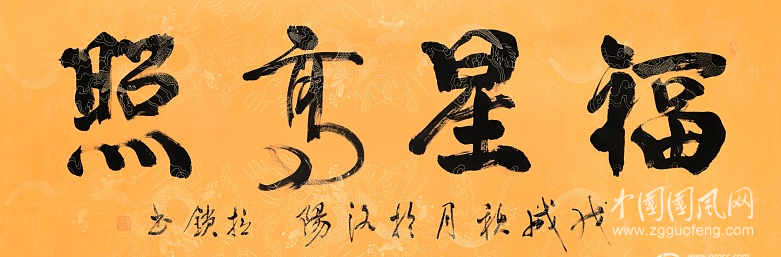 福星高照
戊戌秋月於洛陽 拉鎖書
中国国风网
www.zgguofeng.com